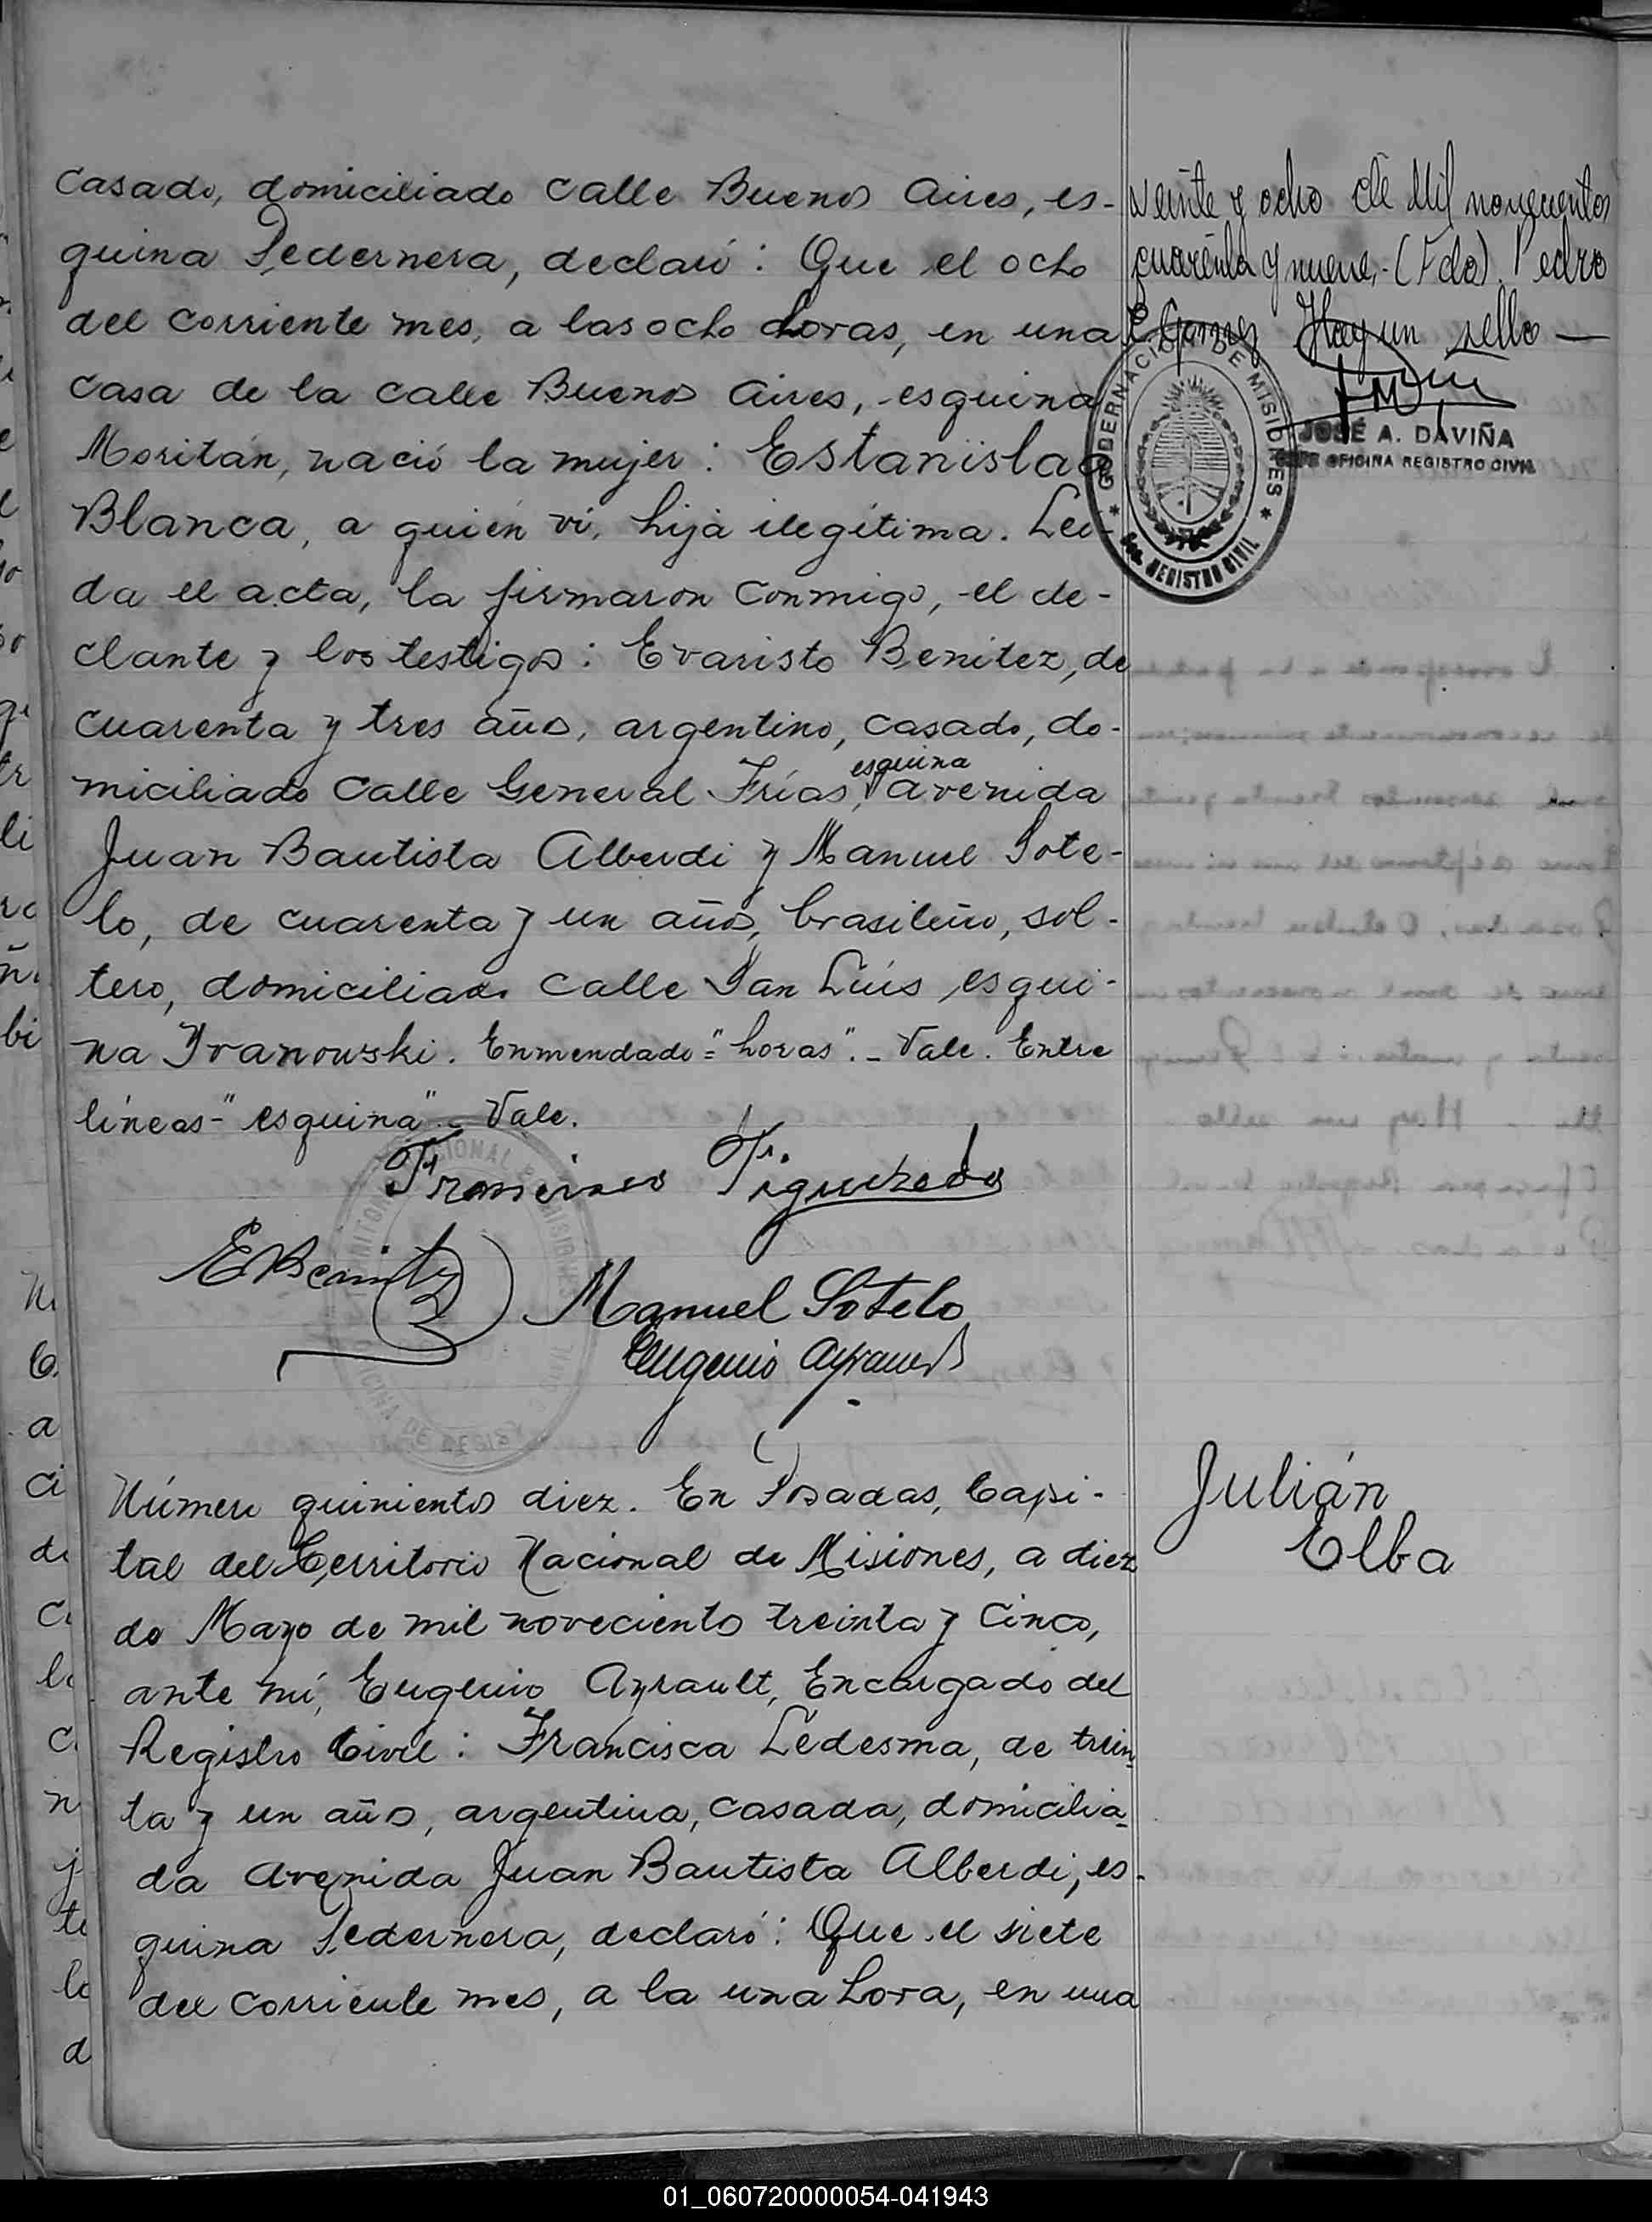 casado, domiciliado calle Buenos Aires, es-
quina Pedernera, declaró: Que el ocho
del corriente mes, a las ocho horas, en una
casa de la calle Buenos Aires, esquina
Moritán, nació la mujer: Estanislaa
Blanca, a quién ví, hija ilegítima. Leí-
da el acta, la firmaron conmigo, el de-
clante y los testigos: Evaristo Benitez, de
cuarenta y tres años, argentino, casado, do-
esquina
miciliado calle General Frías, Avenida
Juan Bautista Alberdi y Manuel Sote-
lo, de cuarenta y un años, brasileño, sol-
tero, domiciliado calle San Luís esqui-
na Ivanowski. Enmendado="horas".- Vale. Entre
líneas-"esquina"- Vale.
Francisco Figueredo
EBenitez
Manuel Sotelo
Eugenio Ayrault
Número quinientos diez. En Posadas, Capi-
tal del Territorio Nacional de Misiones, a diez
de Mayo de mil noveciento treinta y cinco,
ante mí, Eugenio Ayrault, Encargado del
Registro Civil: Francisca Ledesma, de trein
ta y un años, argentina, casada, domicilia-
da Avenida Juan Bautista Alberdi, es-
quina Pedernera, declaró: Que el siete
del corriente mes, a la una hora, en una
veinte y ocho de Mil novecientos
cuarenta y nueve,-(Fdo). Pedro
Hay un sello —
GOBERNACION DE MISIONES
REGISTRO CIVIL
JOSÉ A. DAVIÑA
JEFE OFICINA REGISTRO CIVIL
Julián
Elba
01_060720000054-041943